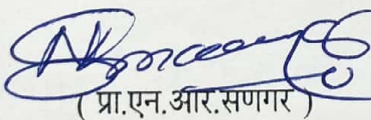 ( प्रा.एन.आर.सणगर )